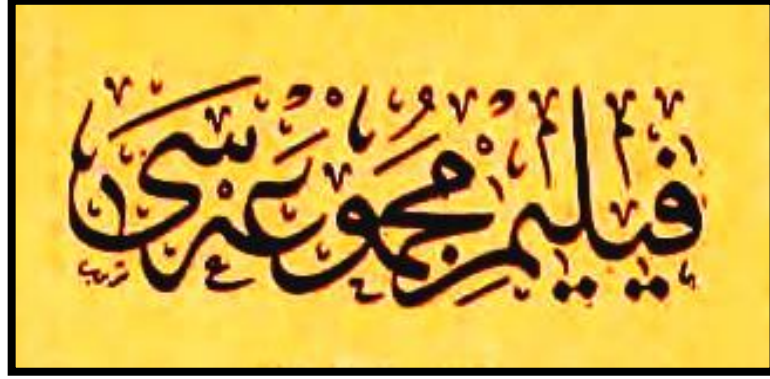 فيليم مجموعه سى